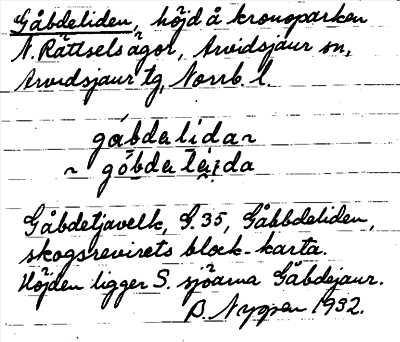 Gåbdeliden, höjd å kronoparken
N. Rättselsågor, Arvidsjaur sn,
Arvidsjaur tg, Norrb. l.
gåbdalidan
~ góbdalai̭da
Gåbdetjavelk, G. 35, Gåbbdeliden,
skogsrevirets block-karta.
Höjden ligger S. sjöarna Gåbdejaur.
B. Nygren 1932.